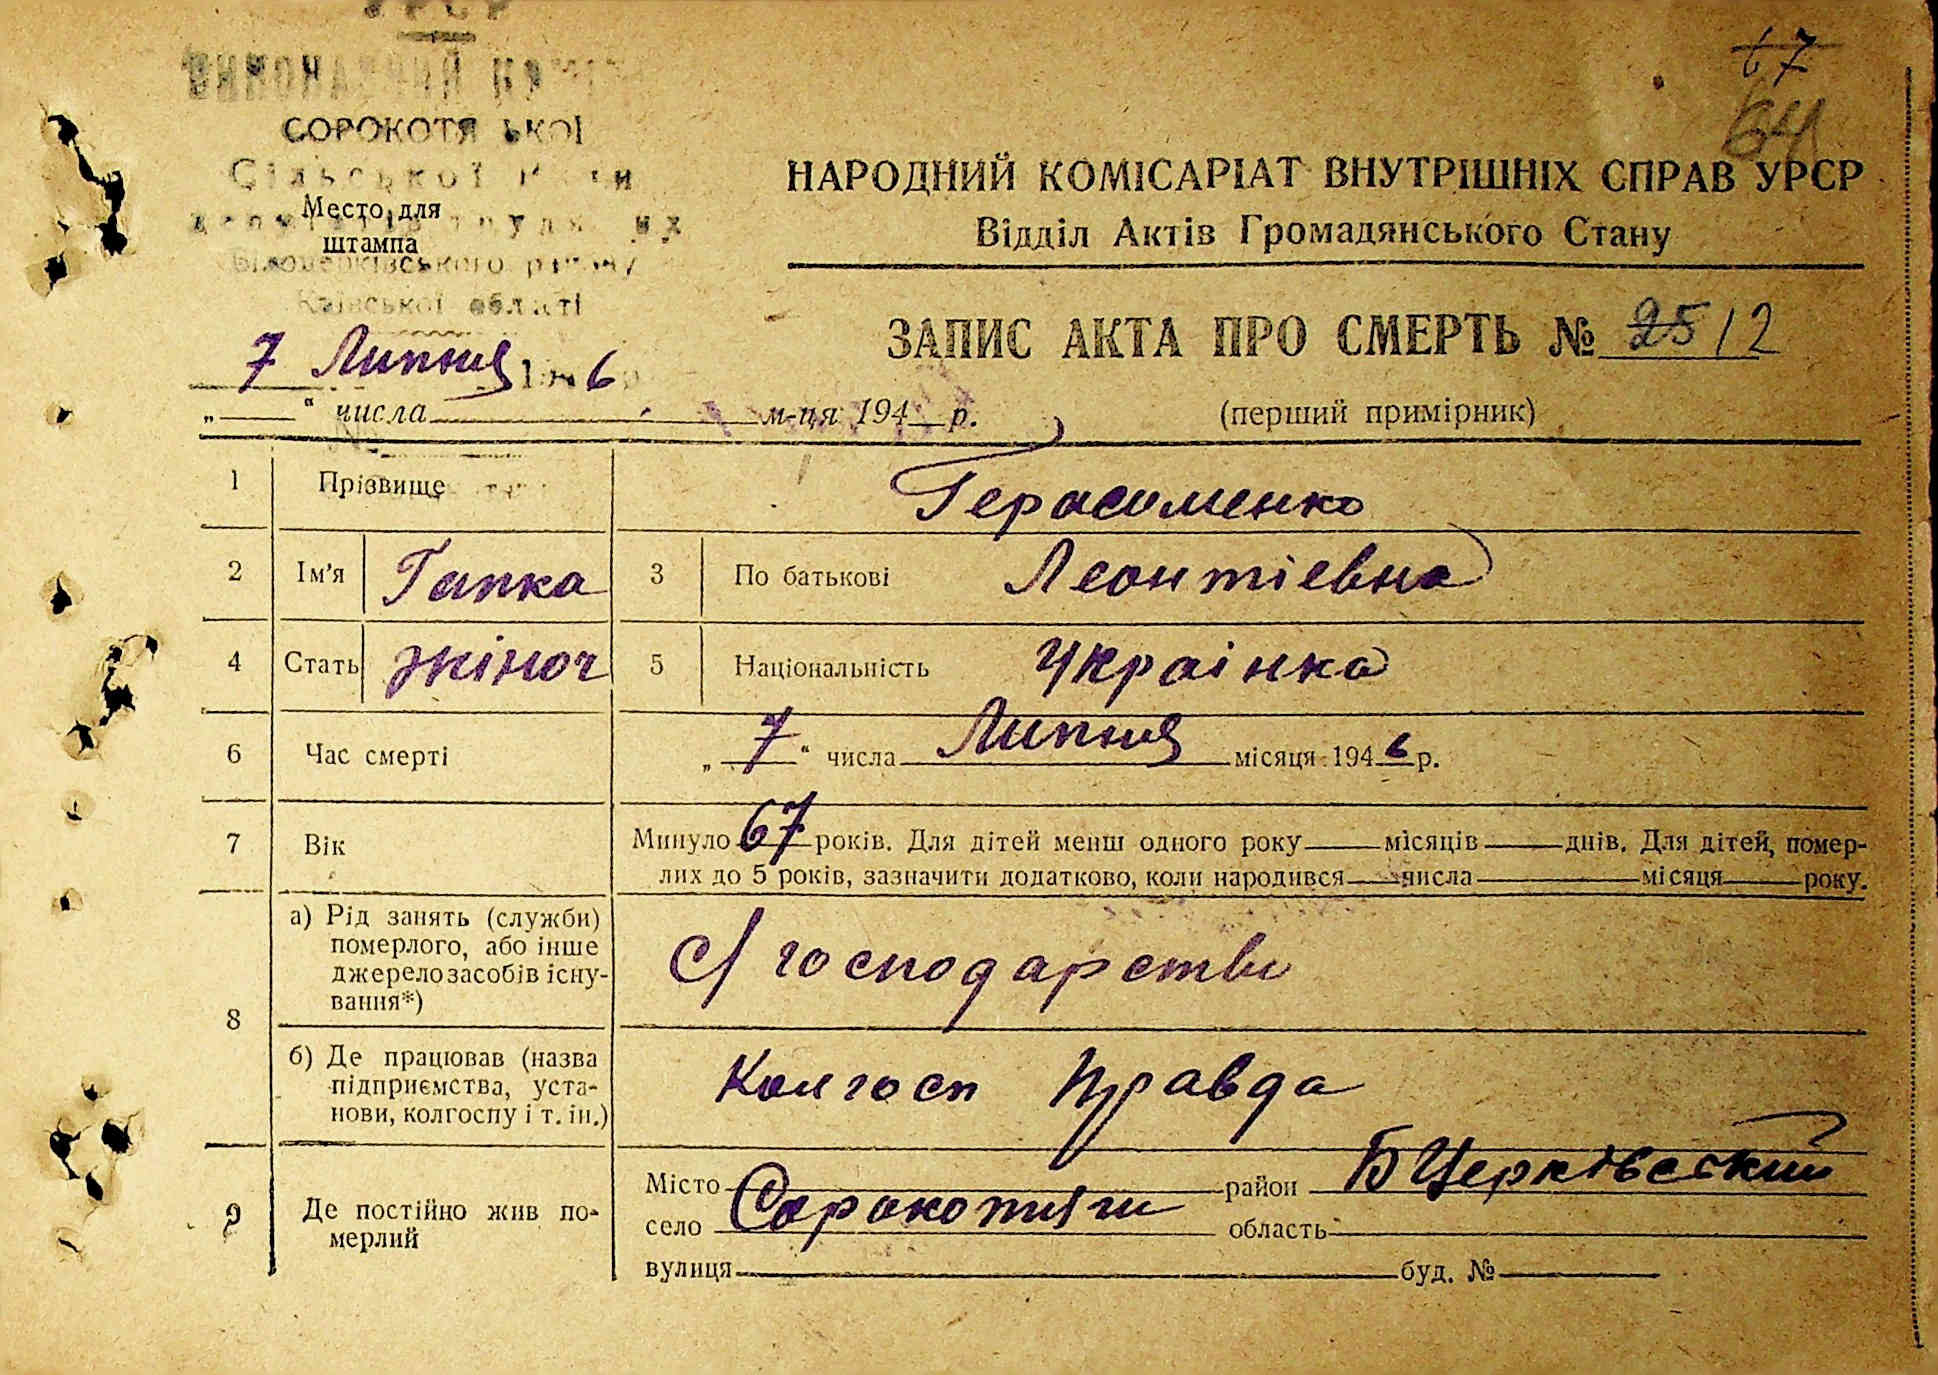 УРСР
ВИКОНАВЧИЙ
СОРОКОТЯ ЬКОЇ
Сільської
Место для
штампа
Білоцерківського району
Київської області
7 Липня 6
„ “ числа м-ця 194 р.
67
64
НАРОДНИЙ КОМІСАРІАТ ВНУТРІШНІХ СПРАВ УРСР
Відділ Актів Громадянського Стану
ЗАПИС АКТА ПРО СМЕРТЬ № 25 12
(перший примірник)
1 Прізвище Герасименко
2 Ім’я Гапка 3 По батькові Леонтіевна
4 Стать жіноч 5 Національність Українка
6 Час смерті „ 7 “ числа Липня місяця 194 6 р.
7 Вік Минуло 67 років. Для дітей менш одного року місяців днів. Для дітей, помер-
лих до 5 років, зазначити додатково, коли народився числа місяця року.
8 а) Рід занять (служби)
померлого, або інше
джерело засобів існу-
вання*)
с/господарстві
б) Де працював (назва
підприємства, уста-
нови, колгоспу і т. ін.)
Колгосп Правда
9 Де постійно жив по-
мерлий
Місто район БЦерківський
село Сорокотяги область
вулиця буд. №